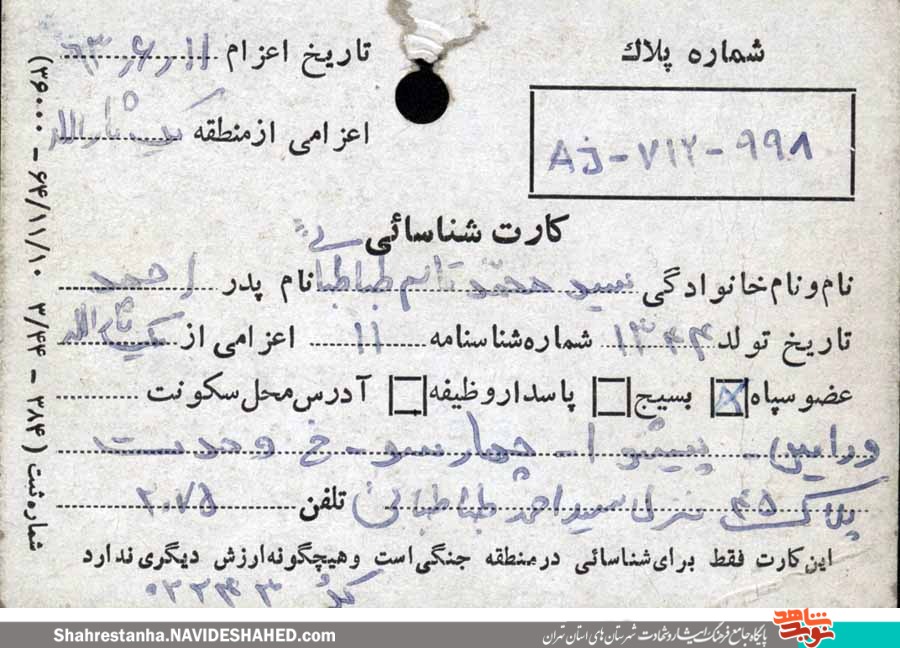 شماره پلاك
تاریخ اعزام ۱۱/۶/۶۳
AJ-۷۱۲-۹۹۸
اعزامی از منطقه ثارالله
کارت شناسائی
نام و نام خانوادگی سید محمد قاسم طباطبائی نام پدر احمد
تاریخ تولد ۱۳۴۴ شماره شناسنامه ۱۱ اعزامی از ثارالله
عضو سپاه بسیج پاسدار وظیفه آدرس محل سکونت
ورامین - پیشوا - چهارسو - خ وحدت
پلاک ۴۵ منزل سید احمد طباطبائی تلفن ۲۰۷۵
این کارت فقط برای شناسائی در منطقه جنگی است و هیچگونه ارزش دیگری ندارد
کد ۰۲۲۴۳
شماره ثبت (۳۸۴ - ۳/۴۴ ۶۴/۱۱/۱۰ - ۳۶۰۰۰)
نوید شاهد
پایگاه جامع فرهنگ ایثار و شهادت شهرستان های استان تهران
Shahrestanha.NAVIDESHAHED.com